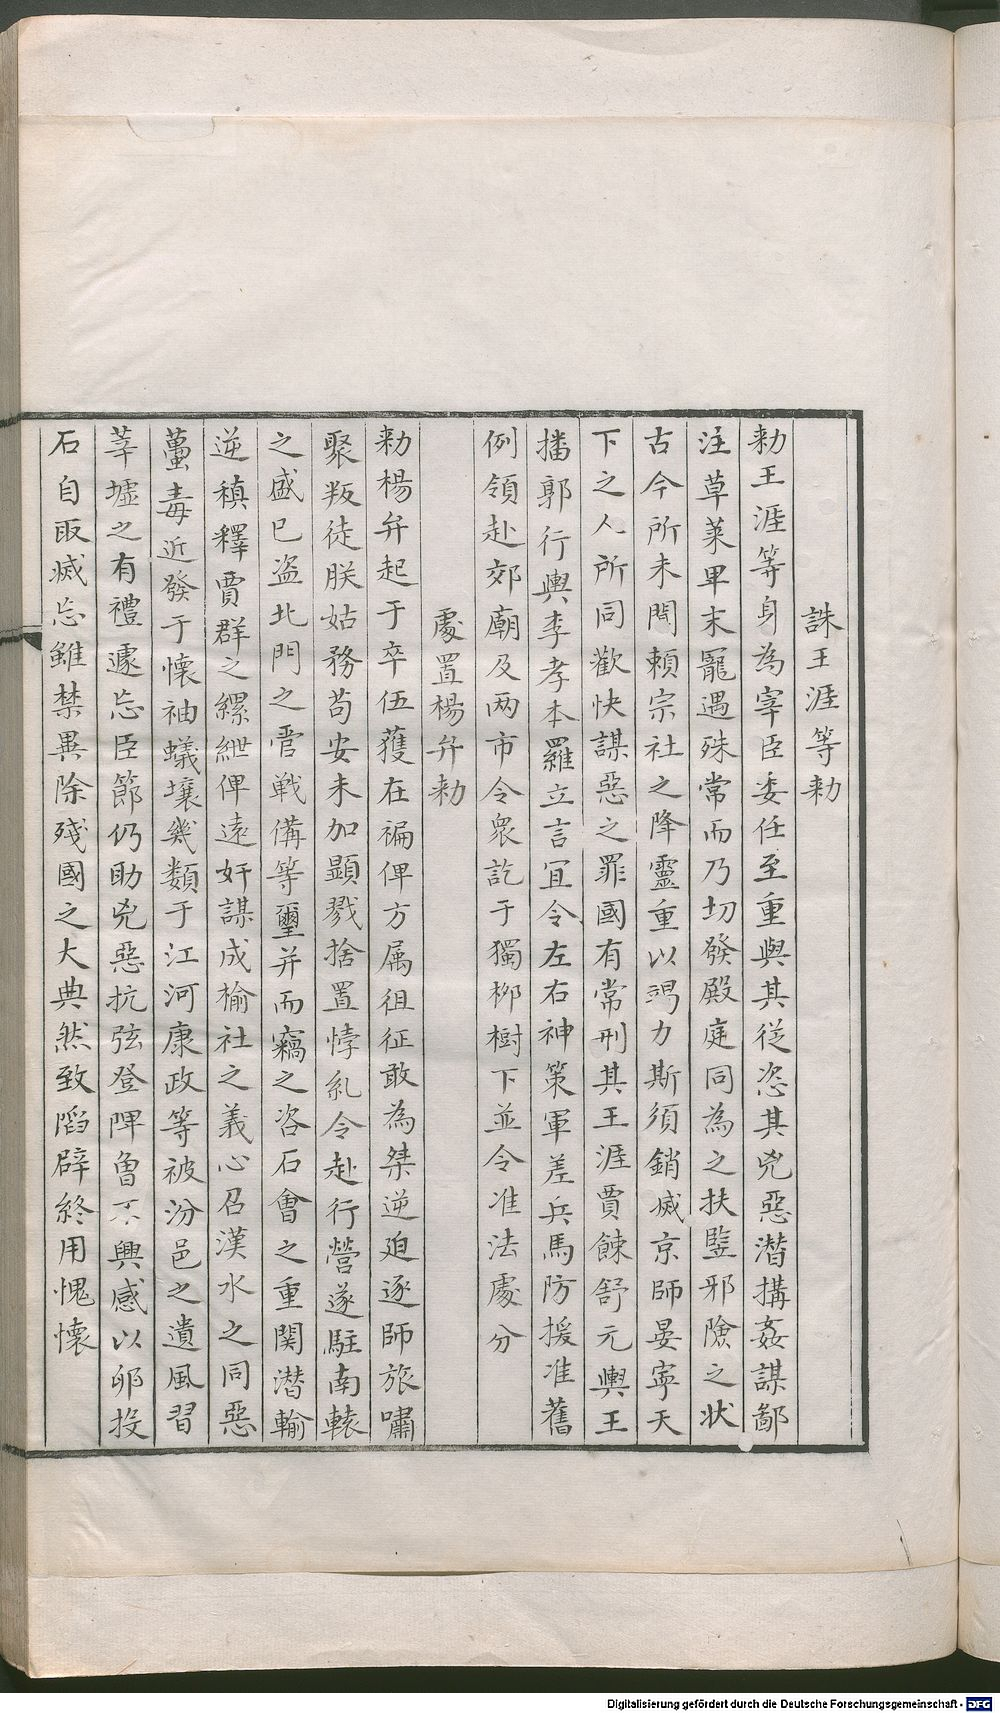 誅王涯等勅
勅王涯等身為宰臣委任至重與其從恣其兇惡潛搆姦謀鄙
注草萊卑末寵遇殊常而乃切發殿庭同為之扶豎邪險之狀
古今所未聞賴宗社之降靈重以竭力斯須銷滅京師晏寧天
下之人所同歡快謀惡之罪國有常刑其王涯賈餗舒元輿王
播郭行輿李孝本羅立言宜令左右神策軍差兵馬防援准舊
例領赴郊廟及两市令衆訖于獨栁樹下並令准法處分
處置楊弁勅
勅楊弁起于卒伍獲在褊俾方属徂征敢為桀逆廹逐師旅嘯
聚叛徒朕姑務苟安未加顯戮捨置悖乱令赴行營遂駐南轅
之盛已盗北門之管戦備等璽并而竊之咨石會之重関潛輸
逆稹釋賈群之縲紲俾遠奸謀成榆社之義心召漢水之同惡
蠆毒近發于懐袖蟻壤幾類于江河康政等被汾邑之遺風習
莘墟之有禮遽忘臣節仍助兇惡抗弦登陴魯不興感以卵投
石自取滅忘雖禁異除殘國之大典然致陷辟終用愧懐
Digitalisierung gefördert durch die Deutsche Forschungsgemeinschaft - DFG